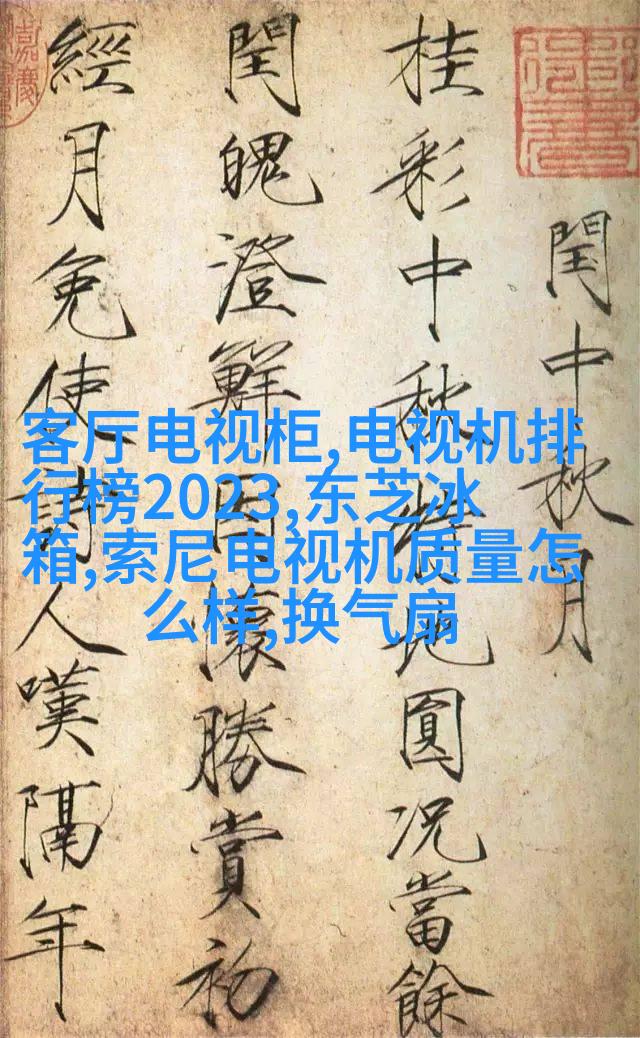 閏中秋月
桂彩中秋特地圓況當餘
閏魄澄鮮因懷勝賞初
經月免使詩人嘆隔年
客厅电视柜,电视机排
行榜2023,东芝冰
箱,索尼电视机质量怎
么样,换气扇